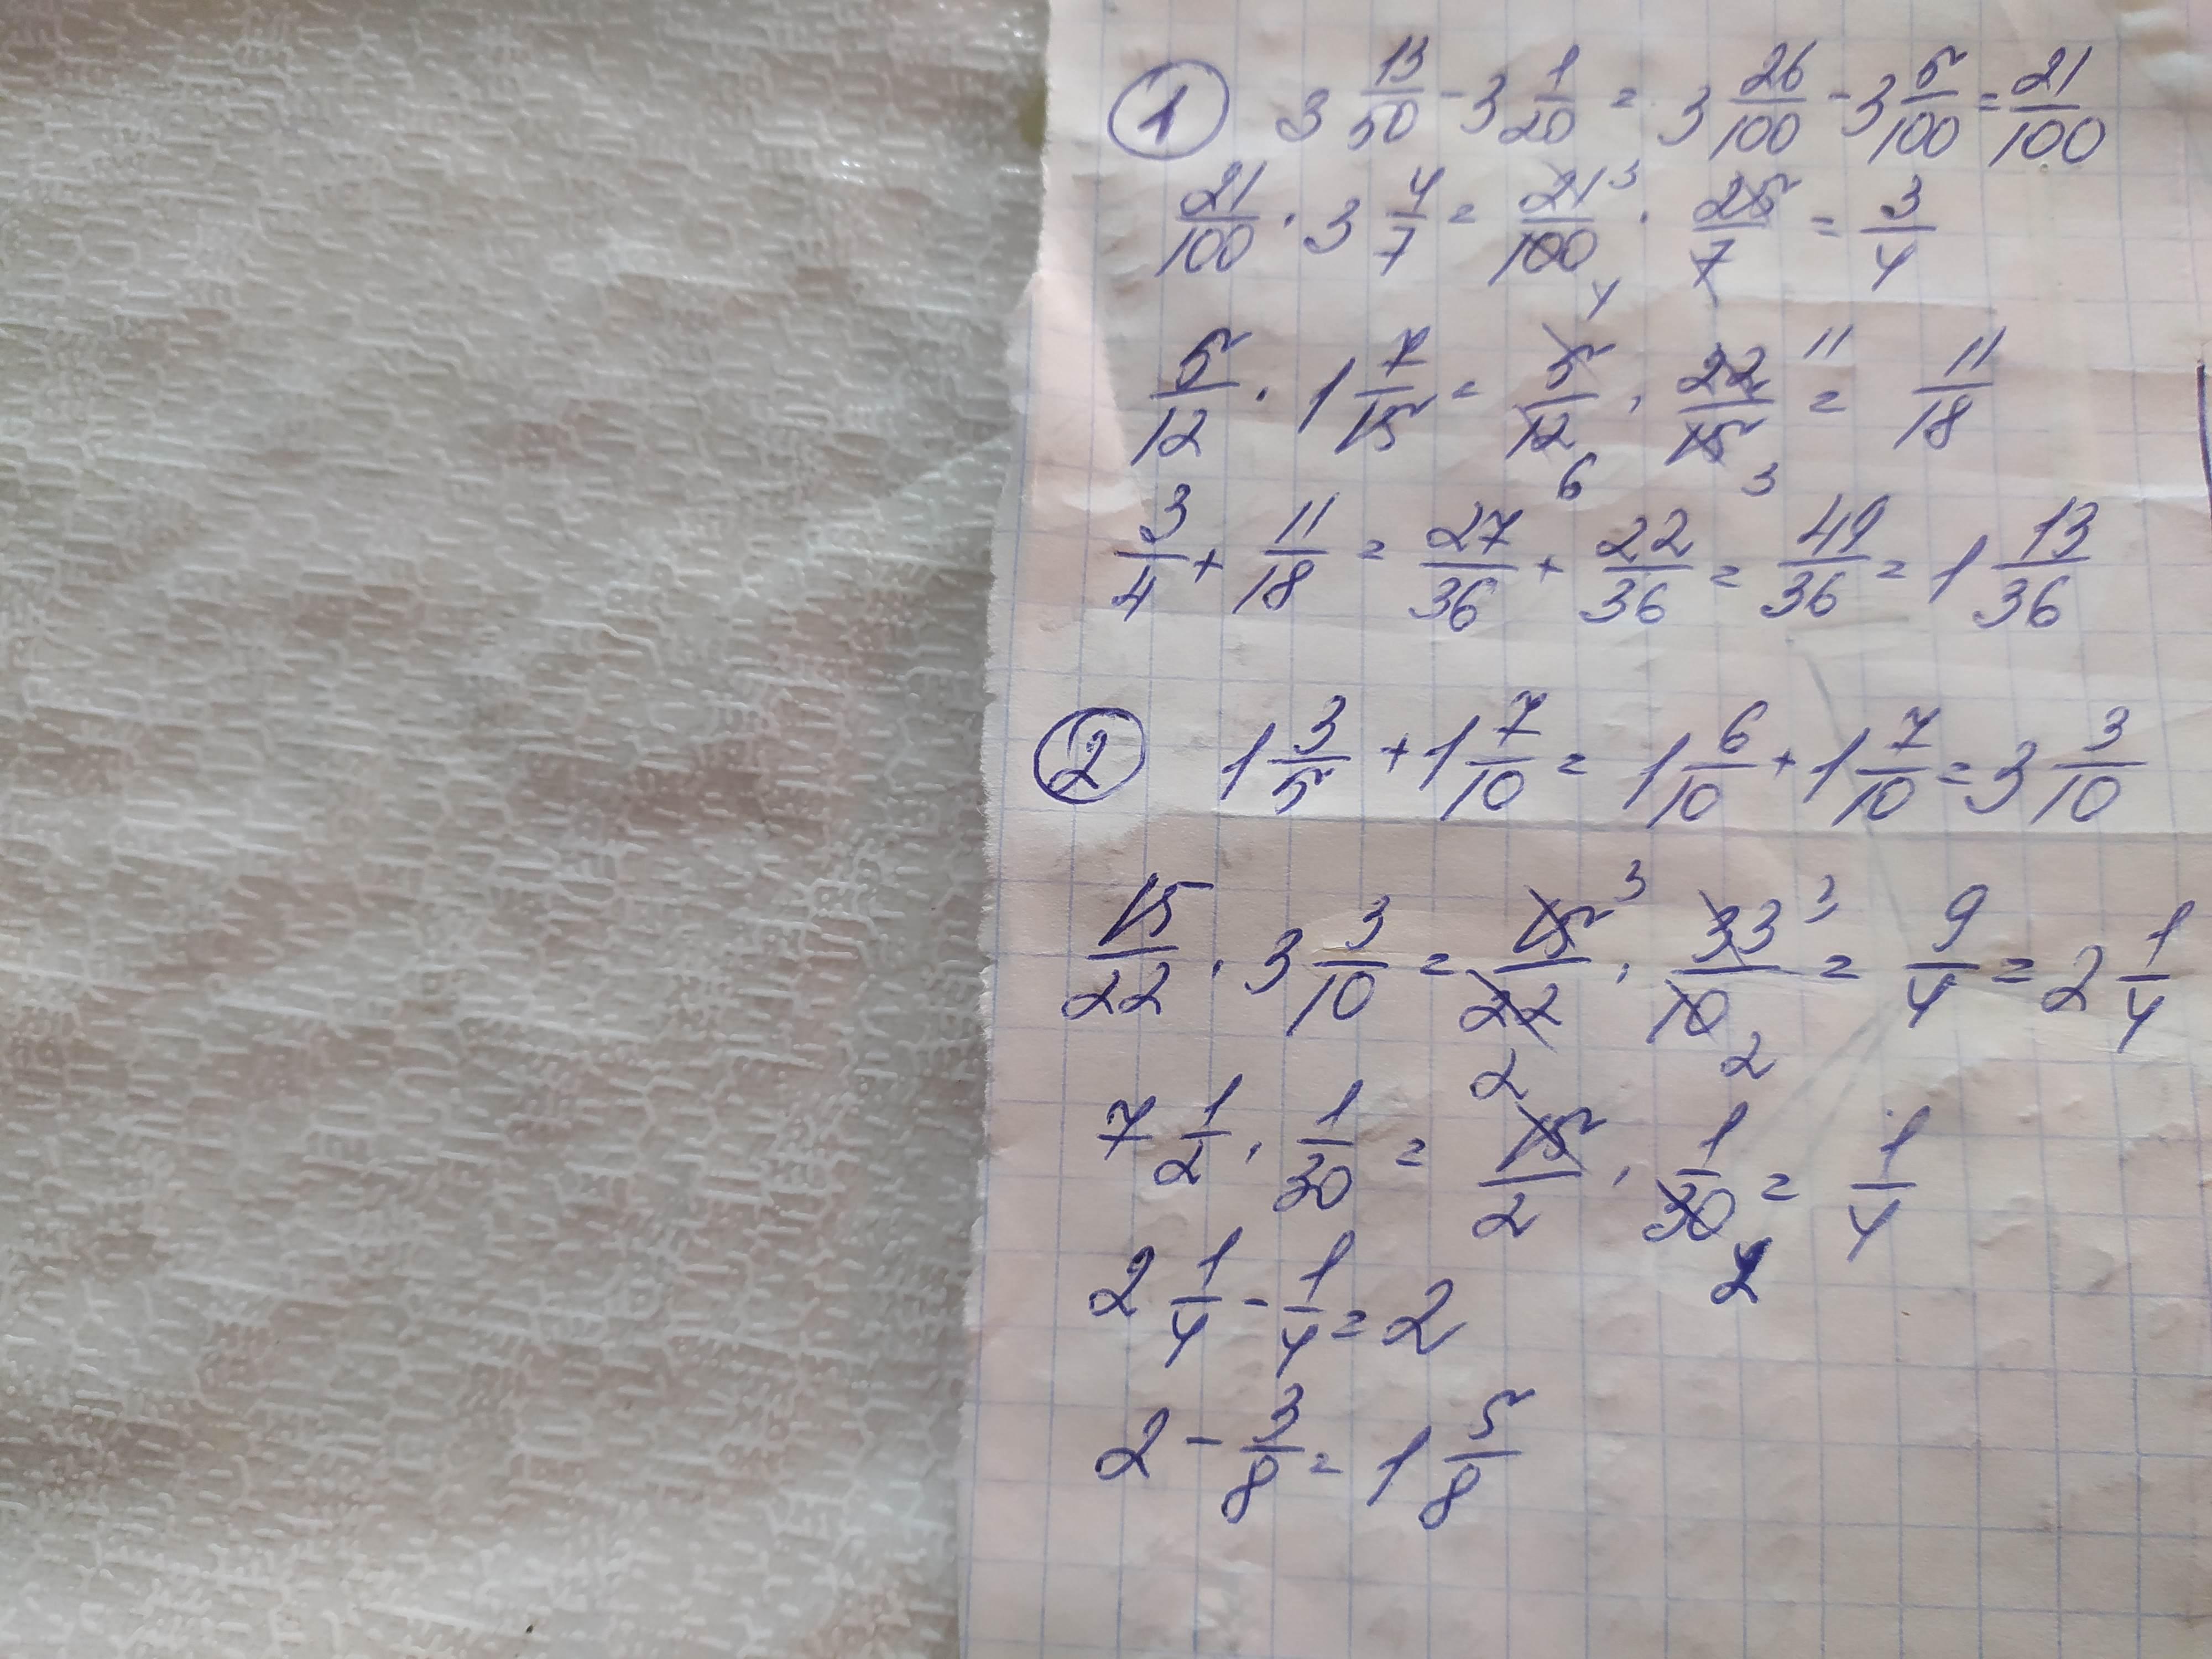 ① 3 13/50 - 3 1/20 = 3 26/100 - 3 5/100 = 21/100
21/100 · 3 4/7 = 21/100 · 25/7 = 3/4
5/12 · 1 7/15 = 5/12 · 22/15 = 11/18
3/4 + 11/18 = 27/36 + 22/36 = 49/36 = 1 13/36
② 1 3/5 + 1 7/10 = 1 6/10 + 1 7/10 = 3 3/10
15/22 · 3 3/10 = 15/22 · 33/10 = 9/4 = 2 1/4
7 1/2 · 1/30 = 15/2 · 1/30 = 1/4
2 1/4 - 1/4 = 2
2 - 3/8 = 1 5/8